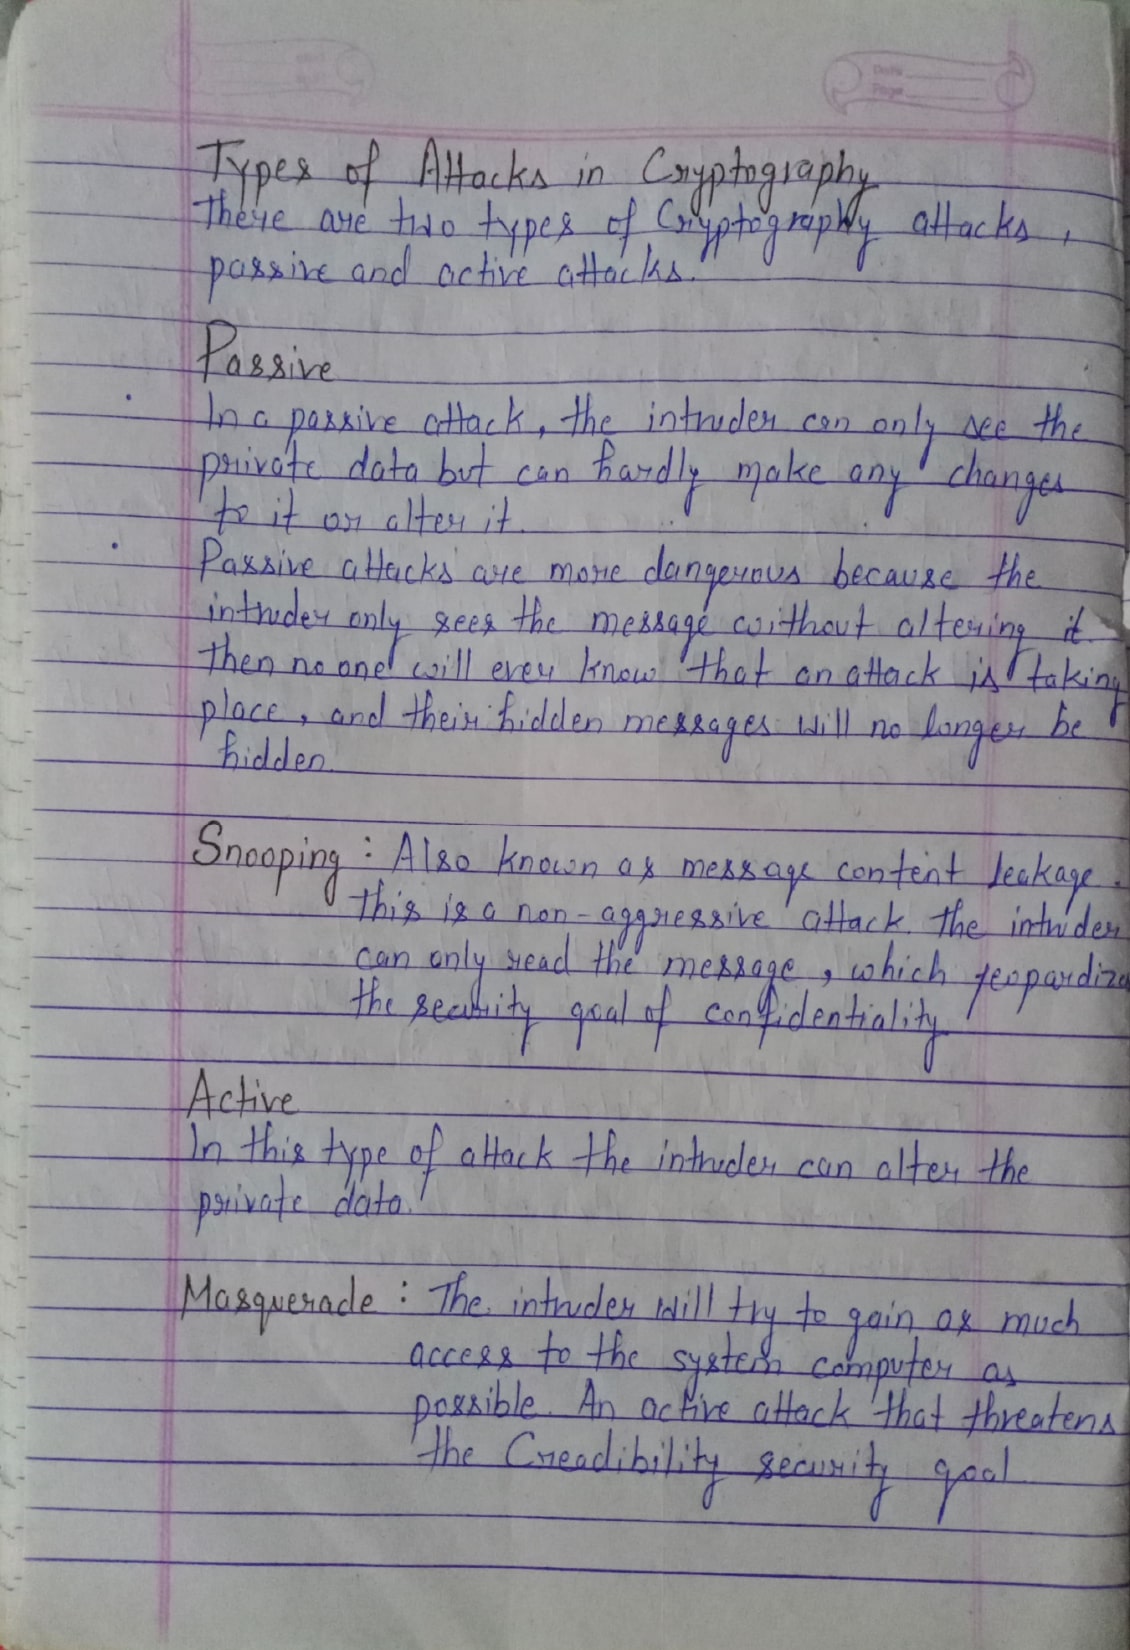 Date
Page
Types of Attacks in Cryptography
There are two types of Cryptography attacks,
passive and active attacks.
Passive
In a passive attack, the intruder can only see the
private data but can hardly make any changes
to it or alter it.
Passive attacks are more dangerous because the
intruder only sees the message without altering it.
Then no one will ever know that an attack is taking
place, and their hidden messages will no longer be
hidden.
Snooping : Also known as message content leakage.
this is a non-aggressive attack. the intruder
can only read the message, which jeopardize
the security goal of confidentiality
Active
In this type of attack the intruder can alter the
private data.
Masquerade : The intruder will try to gain as much
access to the system computer as
possible. An active attack that threatens
the Creadibility security goal